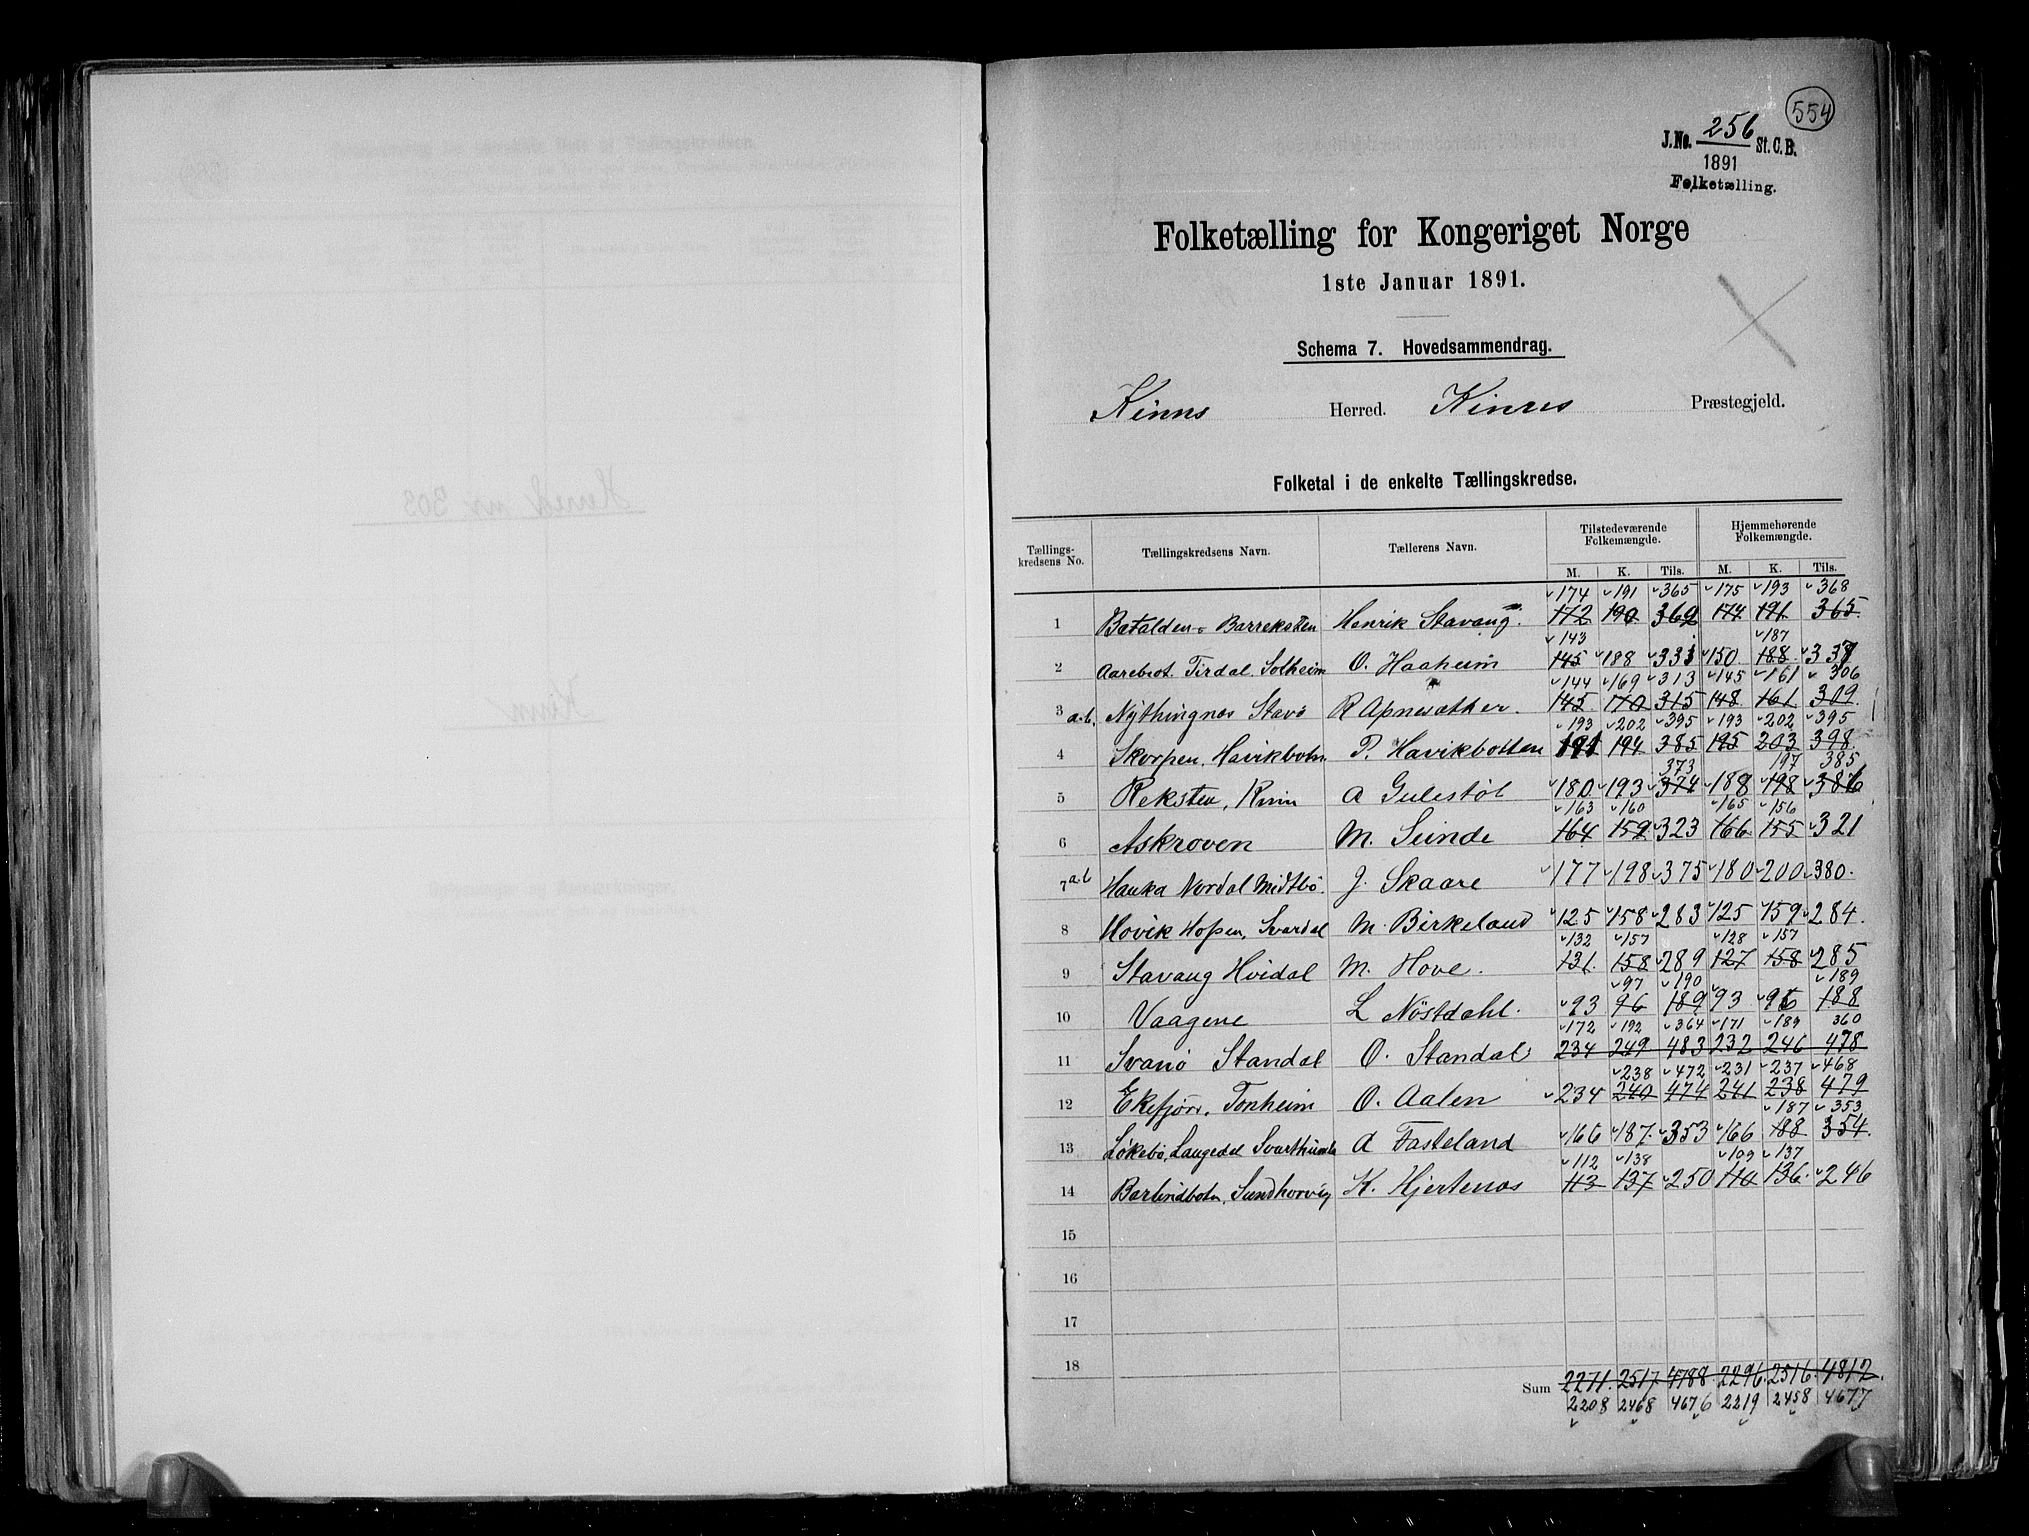 554
J.No. 256 St.C.B.
1891
Folketælling.
Folketælling for Kongeriget Norge
1ste Januar 1891.
Schema 7. Hovedsammendrag.
Kinns Herred. Kinns Præstegjeld.
Folketal i de enkelte Tællingskredse.
Tællings-kredsens No. Tællingskredsens Navn. Tællerens Navn. Tilstedeværende Folkemængde. Hjemmehørende Folkemængde.
M. K. Tils. M. K. Tils.
174 191 365 175 193 368
1 Batalden - Barreksten Henrik Stavang. 172 190 362 174 191 365.
143 187
2 Aarebrot. Tirdal. Solheim O. Haaheim 145 188 331 150 188 337
144 169 313 145 161 306
3 a.b. Nythingnøs Stavø R Apnesæther. 145 170 315 148 161 309.
193 202 395 193 202 395
4 Skorpen, Havikbotn P. Havikbotten 191 194 385 195 203 398
373 197 385
5 Reksten, Kinn A Gulestøl 180 193 374 188 198 386
163 160 165 156
6 Askroven M. Seinde 164 159 323 166 155 321
7 a.b Hauka Nordal Midtbø. J. Skaare 177 198 375 180 200 380.
8 Hovik Hopen, Svardal M. Birkeland 125 158 283 125 159 284.
132 157 128 157
9 Stavang Hvidal M. Hove. 131. 158 289 127 158 285
97 190 189
10 Vaagene L Nøstdahl. 93 96 189 93 96 188
172 192 364 171 189 360
11 Svanø Standal O. Standal 234 249 483 232 246 478
238 472 231 237 468
12 Ekefjör, Tonheim O. Aalen 234 240 474 241 238 479
187 353
13 Løkebø, Langedal Svarthumle A Fasteland 166 187. 353 166 188 354.
112 138 109 137
14 Barlindbotn, Sundhorvig K. Hjertenæs 113 137 250 110 136. 246
15
16
17
18
Sum 2271. 2517 4788. 2296. 2516. 4812.
2208 2468 4676 2219 2458 4677